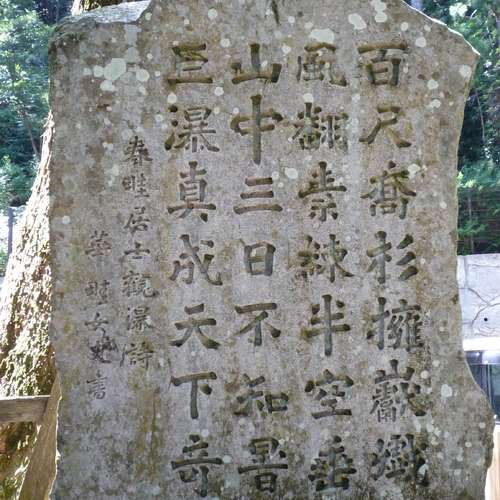 百尺喬杉擁巖巇
風翻紫練半空垂
山中三日不知暑
巨瀑真成天下奇
春畦居士觀瀑詩
華畦女史書